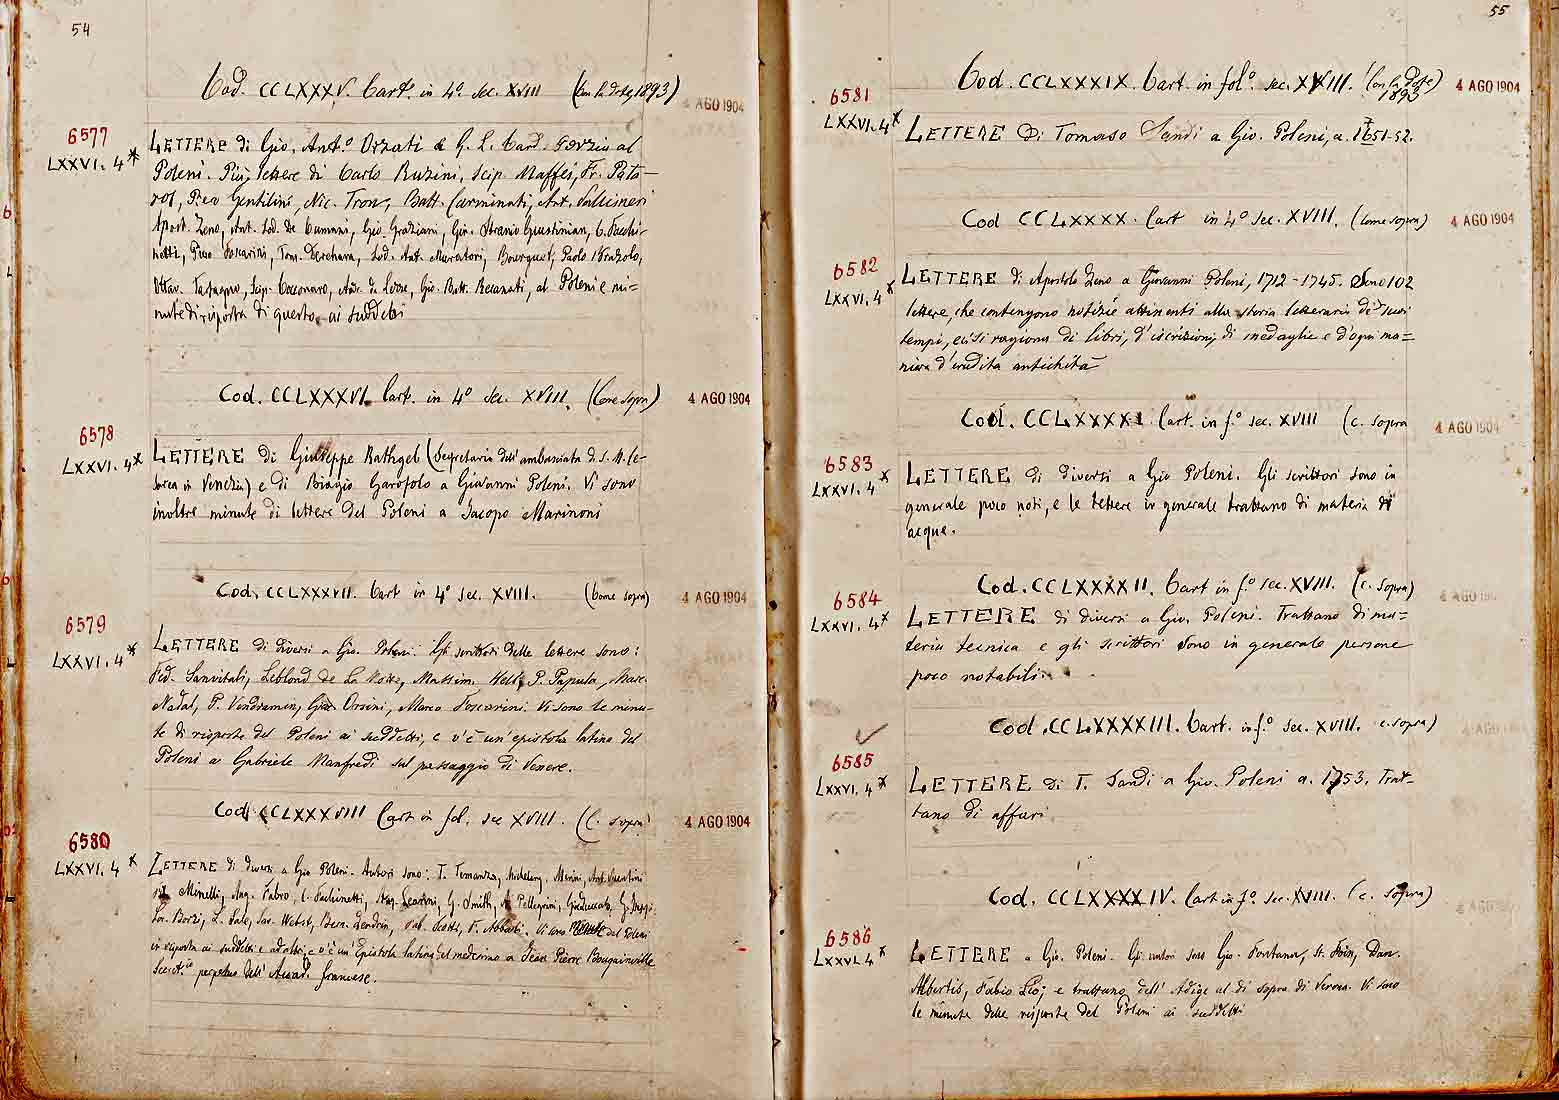 54
Cod. CCLXXXV. Cart. in 4º. sec. XVIII (con la Dote, 1893)
4 AGO 1904
6577
LXXVI. 4*
LETTERE di Gio. Ant.º Orzati e G. L. Card. al
Poleni. Più lettere di Carlo Ruzini, Scip. Maffei, Fr. Pata-
rol, Gentilini, Nic. Tron, Batt. Carminati, Ant. Vallisneri
Apost. Zeno, Ant. Lod. de Cumani, Gio. Graziani, Gir. Ascanio Giustinian, C. Facchi-
netti, Foscarini, Tom. Derehara, Lod. Ant. Muratori, Bourguet, Paolo Brazolo,
Ottav. Scip. And. da Lezze, Gio. Batt. Recanati, al Poleni e mi=
nute di risposta di questo ai suddetti
Cod. CCLXXXVI. Cart. in 4º sec. XVIII. (Come sopra)
4 AGO 1904
6578
LXXVI. 4*
LETTERE di Giuseppe Rathgeb (Segretario dell'ambasciata di S. M. Ce-
sarea in Venezia) e di Biagio Garofolo a Giovanni Poleni. Vi sono
inoltre minute di lettere del Poleni a Jacopo Marinoni
Cod. CCLXXXVII. Cart in 4º sec. XVIII. (Come sopra)
4 AGO 1904
6579
LXXVI. 4*
LETTERE di diversi a Gio. Poleni. Gli scrittori delle lettere sono:
Fed. Sanvitali, Leblond de La Motte, Massim. Hell, P. Papula, Marc.
Nadal, P. Vendramin, Gius. Orsini, Marco Foscarini. Vi sono le minu-
te di risposte del Poleni ai suddetti, e v'è un'epistola latina del
Poleni a Gabriele Manfredi sul passaggio di Venere.
Cod. CCLXXXVIII Cart in fol. sec XVIII. (C. sopra)
4 AGO 1904
6580
LXXVI. 4*
LETTERE di diversi a Gio Poleni. Autori sono: T. Temanza, Michelang. Merini,
Minelli, Ang. Fabro, C. Fachinetti, G. Smith, A. Pellegrini,
Lor. Borzi, L. Salo, Bern. Zendrin, Vi sono Minute del Poleni
in risposta ai suddetti e ad altri, e v'è un'Epistola latina del medesimo a Jean Pierre Bougainville
Sec. perpetuo dell' Accad. francese.
55
Cod. CCLXXXIX. Cart. in folº. sec. XVIII. (con la Dote)
1893
4 AGO 1904
6581
LXXVI. 4*
LETTERE Di Tomaso Sandi a Gio. Poleni, a. 1751-52.
Cod CCLXXXX. Cart in 4º sec. XVIII. (Come sopra)
4 AGO 1904
6582
LXXVI. 4*
LETTERE di Apostolo Zeno a Giovanni Poleni, 1712-1745. Sono 102
lettere, che contengono notizie attinenti alla storia letteraria de' suoi
tempi, e vi si ragiona di libri, d'iscrizioni, di medaglie e d'ogni ma=
niera d'erudita antichità
Cod. CCLXXXXI Cart. in f.º sec. XVIII (c. sopra
4 AGO 1904
6583
LXXVI. 4*
LETTERE di diversi a Gio Poleni. Gli scrittori sono in
generale poco noti, e le lettere in generale trattano di materia di
acque.
Cod. CCLXXXXII. Cart in f.º sec. XVIII. (c. sopra)
4 AGO 1904
6584
LXXVI. 4*
LETTERE di diversi a Gio. Poleni. Trattano di ma=
teria tecnica e gli scrittori sono in generale persone
poco notabili.
Cod. CCLXXXXIII. Cart. in f.º sec. XVIII. c. sopra)
4 AGO 1904
6585
LXXVI. 4*
LETTERE di T. Sandi a Gio. Poleni a. 1753. Trat-
tano di affari.
Cod. CCLXXXXIV. Cart in f.º sec. XVIII. (c. sopra)
4 AGO
6586
LXXVI. 4*
LETTERE a Gio. Poleni. Gli autori sono Gio. Fontana, Dan.
Albertis, Fabio Lio; e trattano dell' Adige al di sopra di Verona. Vi sono
le minute delle risposte del Poleni ai suddetti